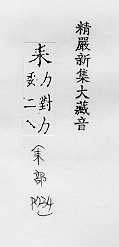 精嚴新集大藏音
耒力對力
耒二〵
(耒部
P034)